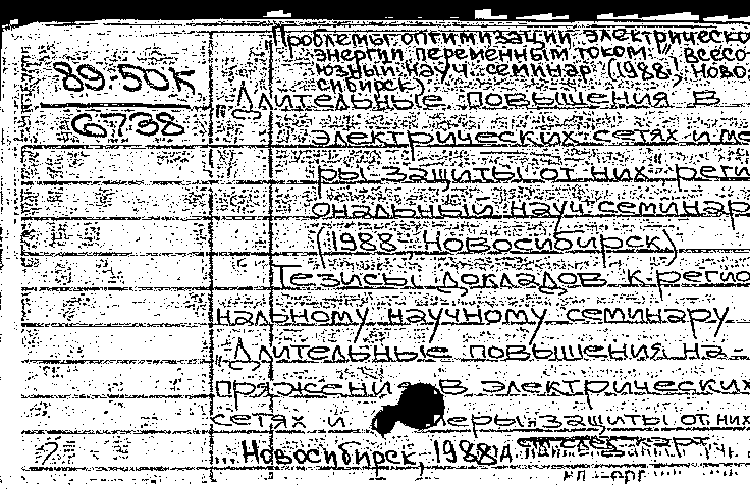 „Проблемы оптимизации электрическо
энергии переменным током", всесо
юзный науч. семинар (1988; Ново
сибирск)
89-50К
6738
„Длительные повышения в
электрических сетях и ме
ры защиты от них", реги
ональный науч. семинар
(1988; Новосибирск)
Тезисы докладов к регио
нальному научному семинару
„Длительные повышения на-
пряжения в электрических
сетях и меры защиты от них
... Новосибирск, 1988